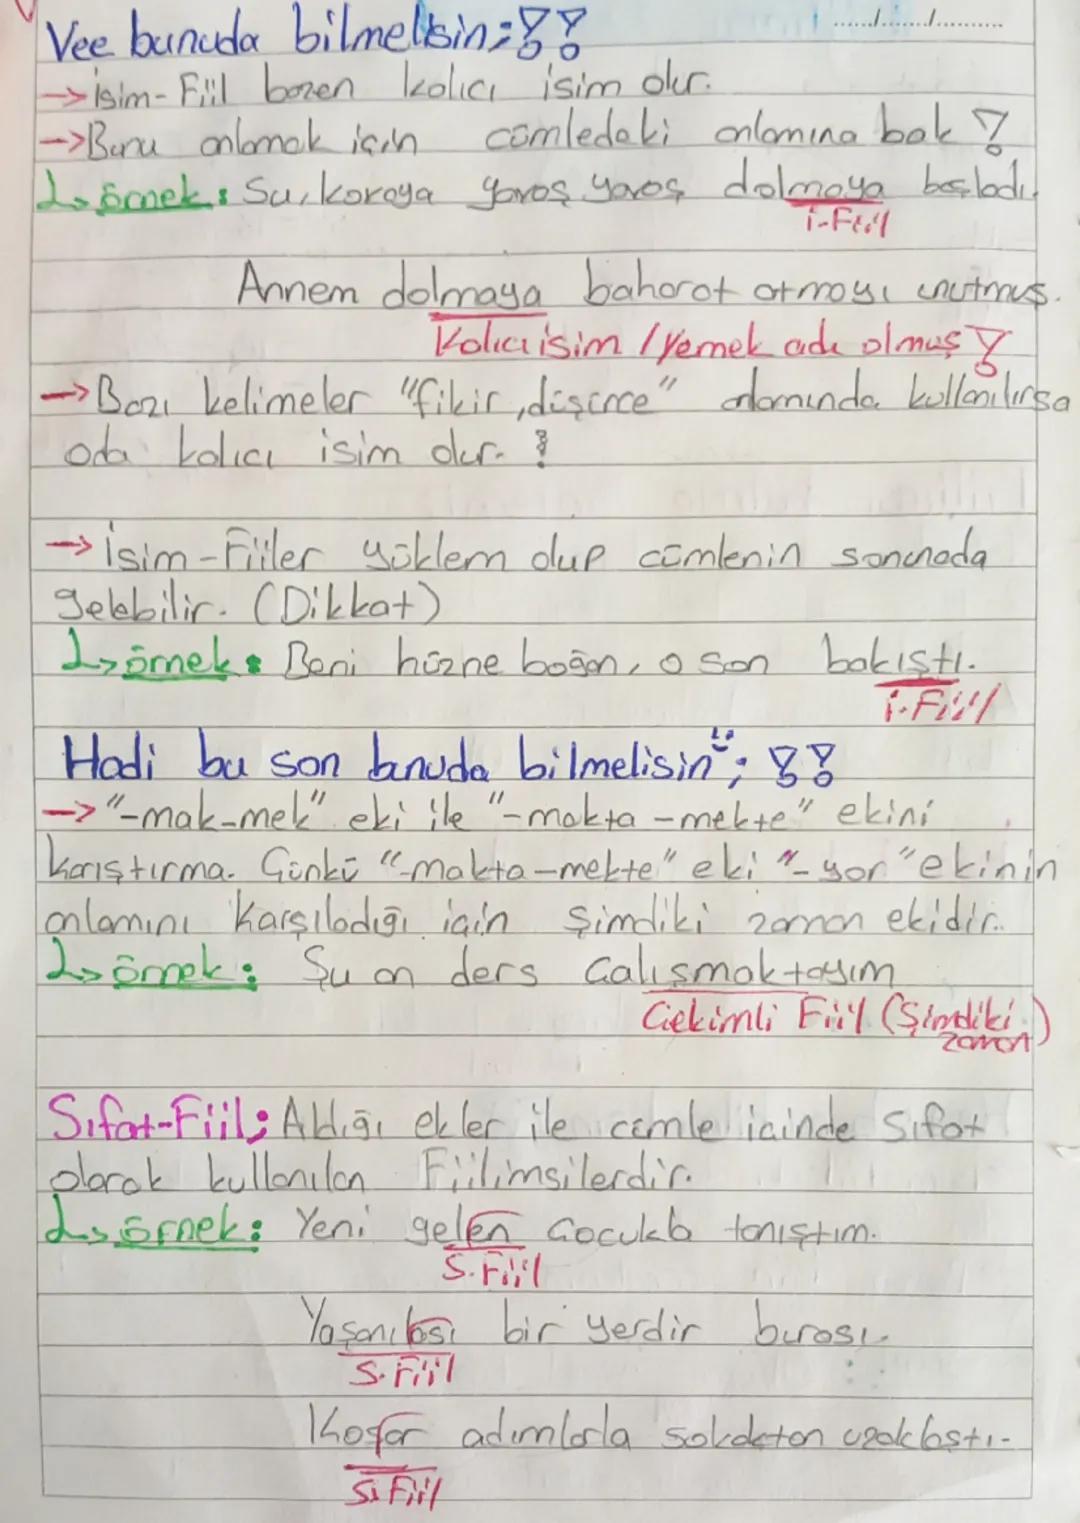 Vee bunuda bilmelisin;!!
...../...../..........
→ İsim-Fiil bazen kalıcı isim olur.
→ Bunu anlamak için cümledeki anlamına bak !
↳ örnek: Su, kovaya yavaş yavaş dolmaya başladı.
i-Fiil
Annem dolmaya baharat atmayı unutmuş.
Kalıcı isim / Yemek adı olmuş !
→ Bazı kelimeler "fikir, düşünce" anlamında kullanılırsa
oda kalıcı isim olur. !
→ İsim-Fiiler yüklem olup cümlenin sonunada
gelebilir. (Dikkat)
↳ örnek: Beni hüzne boğan, o son bakıştı.
i-Fiil
Hadi bu son bunuda bilmelisin; !!
→ "-mak-mek" eki ile "-makta -mekte" ekini
karıştırma. Çünkü "-makta-mekte" eki "-yor" ekinin
anlamını karşıladığı için şimdiki zaman ekidir.
↳ örnek: Şu an ders çalışmaktayım
Çekimli Fiil (Şimdiki
zaman)
Sıfat-Fiil; Aldığı ekler ile cümle içinde sıfat
olarak kullanılan Fiilimsilerdir.
↳ örnek: Yeni gelen çocukla tanıştım.
S.Fiil
Yaşanılası bir yerdir burası.
S.Fiil
Koşar adımlarla sokaktan uzaklaştı.
S.Fiil